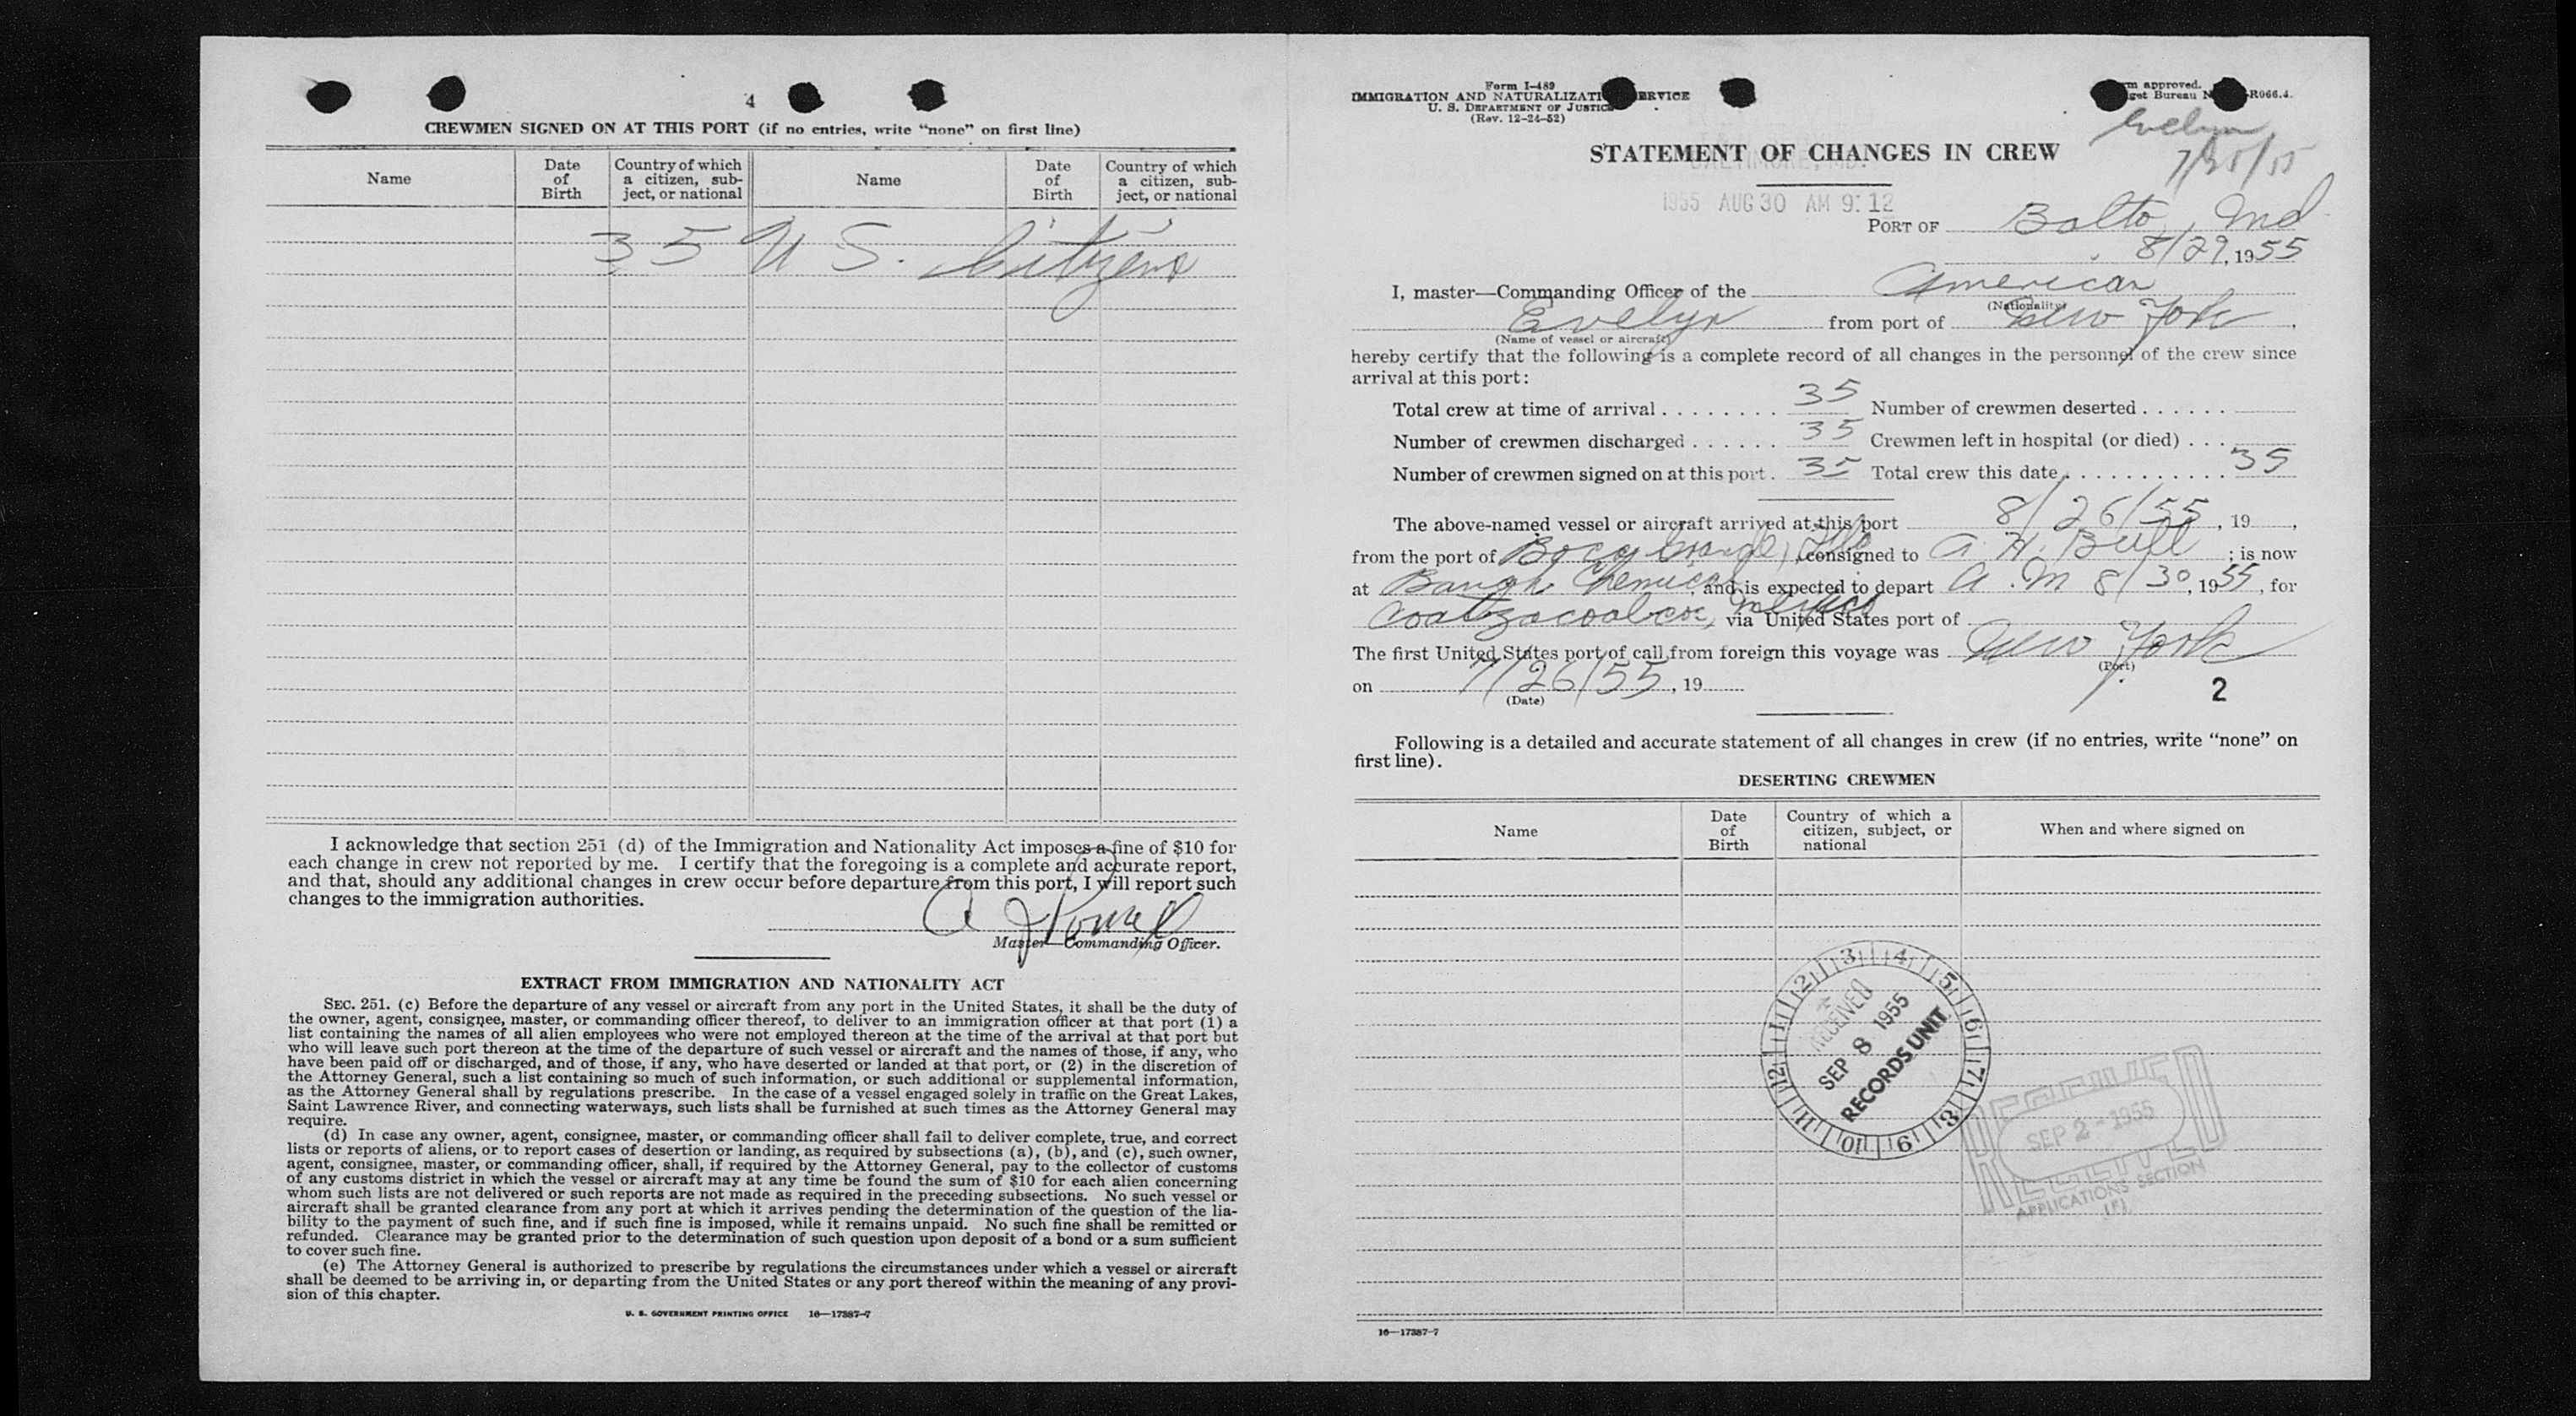 4
CREWMEN SIGNED ON AT THIS PORT (if no entries, write “none” on first line)
Name
Date of Birth
Country of which a citizen, sub-ject, or national
Name
Date of Birth
Country of which a citizen, sub-ject, or national
35 U S. Citizens
I acknowledge that section 251 (d) of the Immigration and Nationality Act imposes a fine of $10 for
each change in crew not reported by me. I certify that the foregoing is a complete and accurate report,
and that, should any additional changes in crew occur before departure from this port, I will report such
changes to the immigration authorities.
Master—Commanding Officer.
EXTRACT FROM IMMIGRATION AND NATIONALITY ACT
SEC. 251. (c) Before the departure of any vessel or aircraft from any port in the United States, it shall be the duty of
the owner, agent, consignee, master, or commanding officer thereof, to deliver to an immigration officer at that port (1) a
list containing the names of all alien employees who were not employed thereon at the time of the arrival at that port but
who will leave such port thereon at the time of the departure of such vessel or aircraft and the names of those, if any, who
have been paid off or discharged, and of those, if any, who have deserted or landed at that port, or (2) in the discretion of
the Attorney General, such a list containing so much of such information, or such additional or supplemental information,
as the Attorney General shall by regulations prescribe. In the case of a vessel engaged solely in traffic on the Great Lakes,
Saint Lawrence River, and connecting waterways, such lists shall be furnished at such times as the Attorney General may
require.
(d) In case any owner, agent, consignee, master, or commanding officer shall fail to deliver complete, true, and correct
lists or reports of aliens, or to report cases of desertion or landing, as required by subsections (a), (b), and (c), such owner,
agent, consignee, master, or commanding officer, shall, if required by the Attorney General, pay to the collector of customs
of any customs district in which the vessel or aircraft may at any time be found the sum of $10 for each alien concerning
whom such lists are not delivered or such reports are not made as required in the preceding subsections. No such vessel or
aircraft shall be granted clearance from any port at which it arrives pending the determination of the question of the lia-
bility to the payment of such fine, and if such fine is imposed, while it remains unpaid. No such fine shall be remitted or
refunded. Clearance may be granted prior to the determination of such question upon deposit of a bond or a sum sufficient
to cover such fine.
(e) The Attorney General is authorized to prescribe by regulations the circumstances under which a vessel or aircraft
shall be deemed to be arriving in, or departing from the United States or any port thereof within the meaning of any provi-
sion of this chapter.
U. S. GOVERNMENT PRINTING OFFICE 16—17387-7
Form I-489
IMMIGRATION AND NATURALIZATI ERVICE
U. S. DEPARTMENT OF JUSTIC
(Rev. 12-24-52)
m approved.
get Bureau N R066.4.
Evelyn
7/25/55
STATEMENT OF CHANGES IN CREW
BALTIMORE, MD.
1955 AUG 30 AM 9:12
PORT OF Balto, Md
8/29, 1955
I, master—Commanding Officer of the American
(Nationality)
Evelyn from port of New York,
(Name of vessel or aircraft)
hereby certify that the following is a complete record of all changes in the personnel of the crew since
arrival at this port:
Total crew at time of arrival 35 Number of crewmen deserted
Number of crewmen discharged 35 Crewmen left in hospital (or died)
Number of crewmen signed on at this port 35 Total crew this date 35
The above-named vessel or aircraft arrived at this port 8/26/55, 19 ,
from the port of Boca Grande, Fla, consigned to A. H. Bull; is now
at Baugh Chemical, and is expected to depart A.M 8/30, 1955, for
Coatzacoalcos, Mexico via United States port of
The first United States port of call from foreign this voyage was New York
(Port)
on 7/26/55, 19
(Date)
2
Following is a detailed and accurate statement of all changes in crew (if no entries, write “none” on
first line).
DESERTING CREWMEN
Name
Date of Birth
Country of which a citizen, subject, or national
When and where signed on
RECEIVED
SEP 8 1955
RECORDS UNIT
1 2 3 4 5 6 7 8 9 10 11 12
RECEIVED
SEP 2 - 1955
APPLICATIONS SECTION
16—17387-7